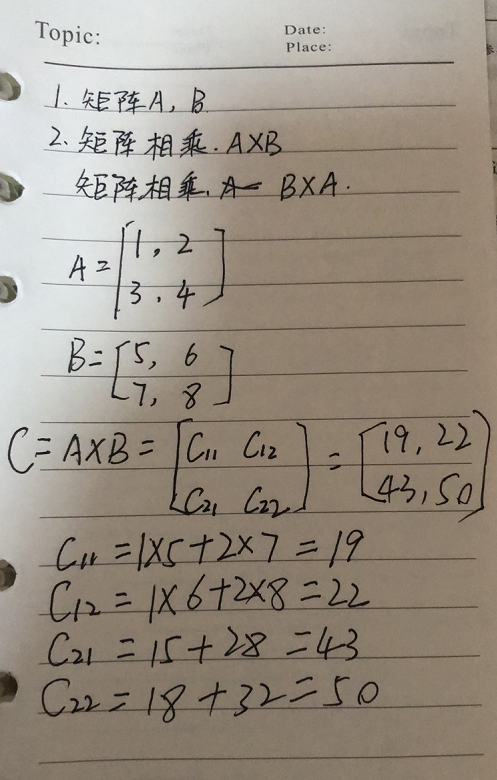 Topic:
Date:
Place:
1. 矩阵A, B
2. 矩阵相乘. A×B
矩阵相乘. A B×A.
A = [1, 2
3, 4]
B = [5, 6
7, 8]
C = A×B = [C11 C12
C21 C22] = [19, 22
43, 50]
C11 = 1×5+2×7 = 19
C12 = 1×6+2×8 = 22
C21 = 15+28 = 43
C22 = 18+32 = 50